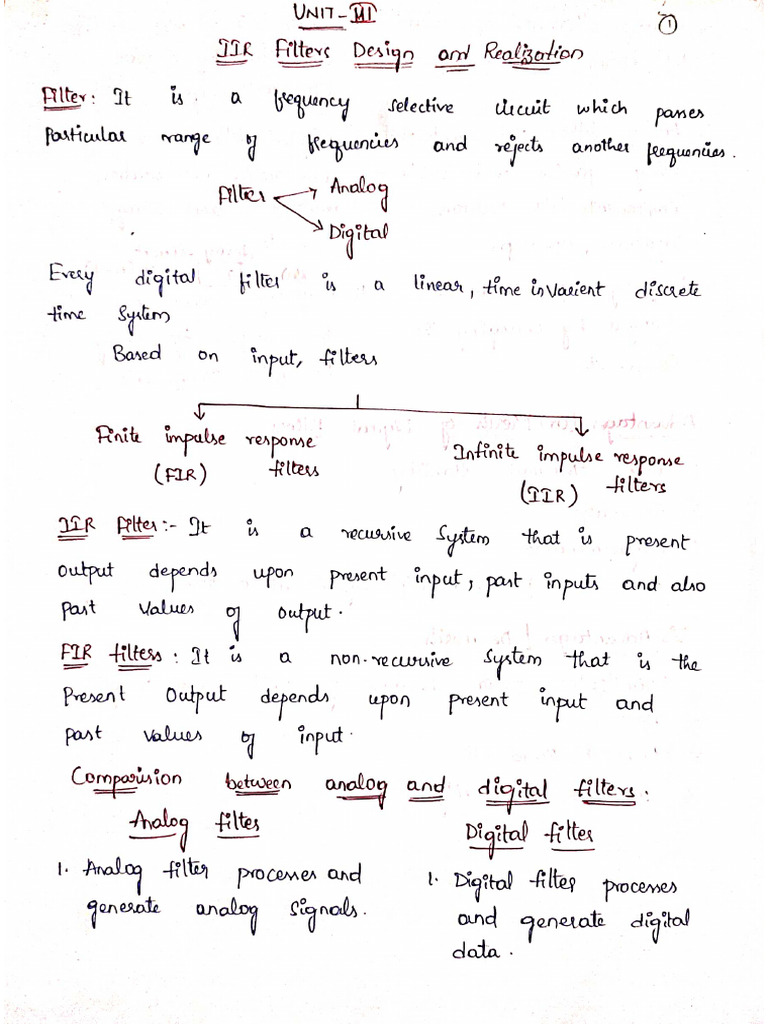 UNIT-III
1
IIR Filters Design and Realization
Filter: It is a frequency selective circuit which passes
particular range of frequencies and rejects another frequencies.
Filter
Analog
Digital
Every digital filter is a linear, time invarient discrete
time system
Based on input, filters
Finite impulse response
(FIR) filters
Infinite impulse response
(IIR) filters
IIR Filter:- It is a recursive system that is present
output depends upon present input, past inputs and also
past values of output.
FIR filters: It is a non-recursive system that is the
present output depends upon present input and
past values of input.
Comparision between analog and digital filters:
Analog filter
1. Analog filter processes and
generate analog signals.
Digital filter
1. Digital filter processes
and generate digital
data.